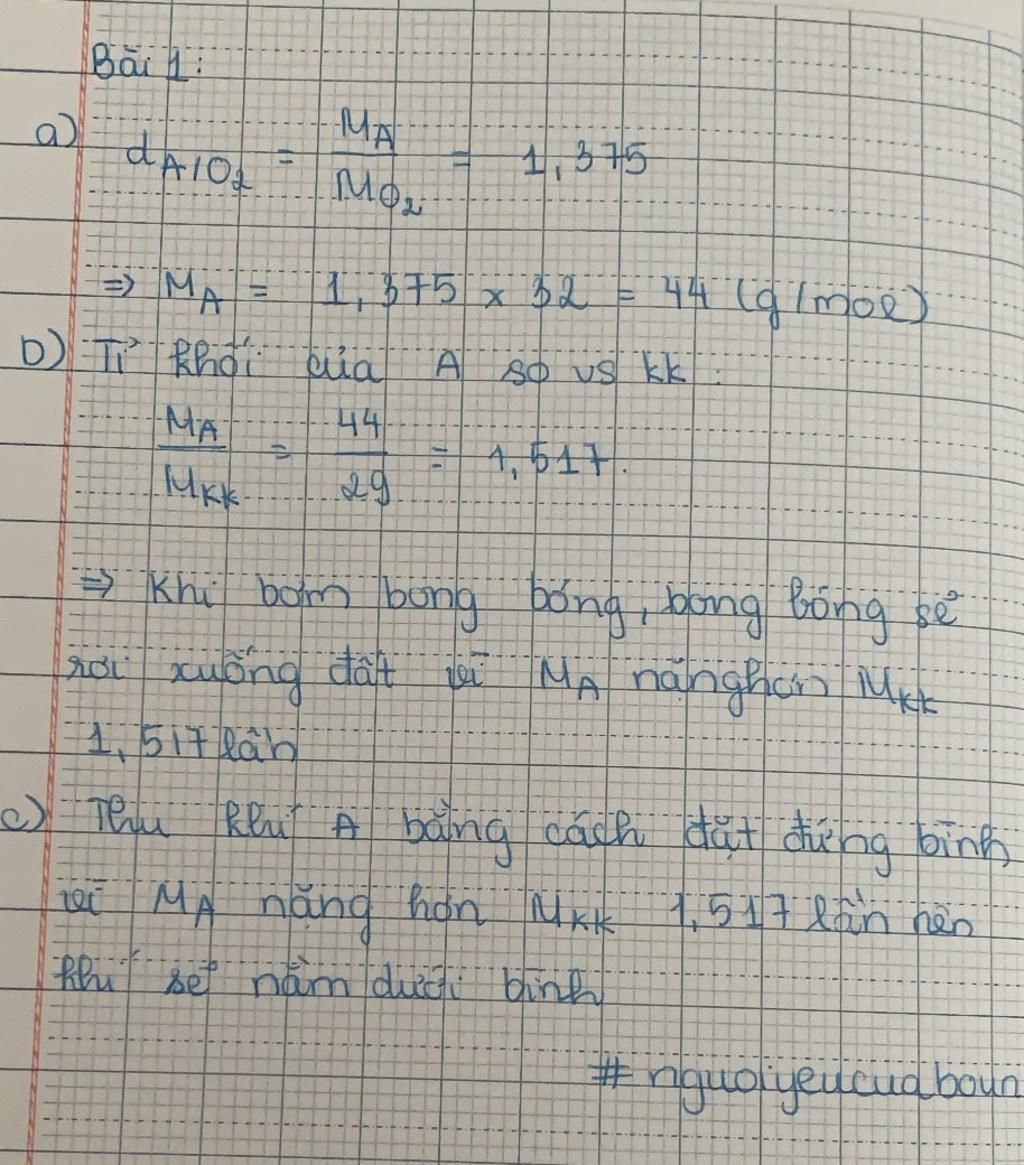 Bài 1:
a) dA/O2 = MA/MO2 = 1,375
=> MA = 1,375 x 32 = 44 (g/mol)
b) Tỉ khối của A so vs kk:
MA/MKK = 44/29 = 1,517.
=> Khi bơm bong bóng, bong bóng sẽ
rơi xuống đất vì MA nặng hơn MKK
1,517 lần
c) Thu khí A bằng cách đặt đứng bình
vì MA nặng hơn MKK 1,517 lần nên
khí sẽ nằm dưới bình
# nguoiyeucuaboun